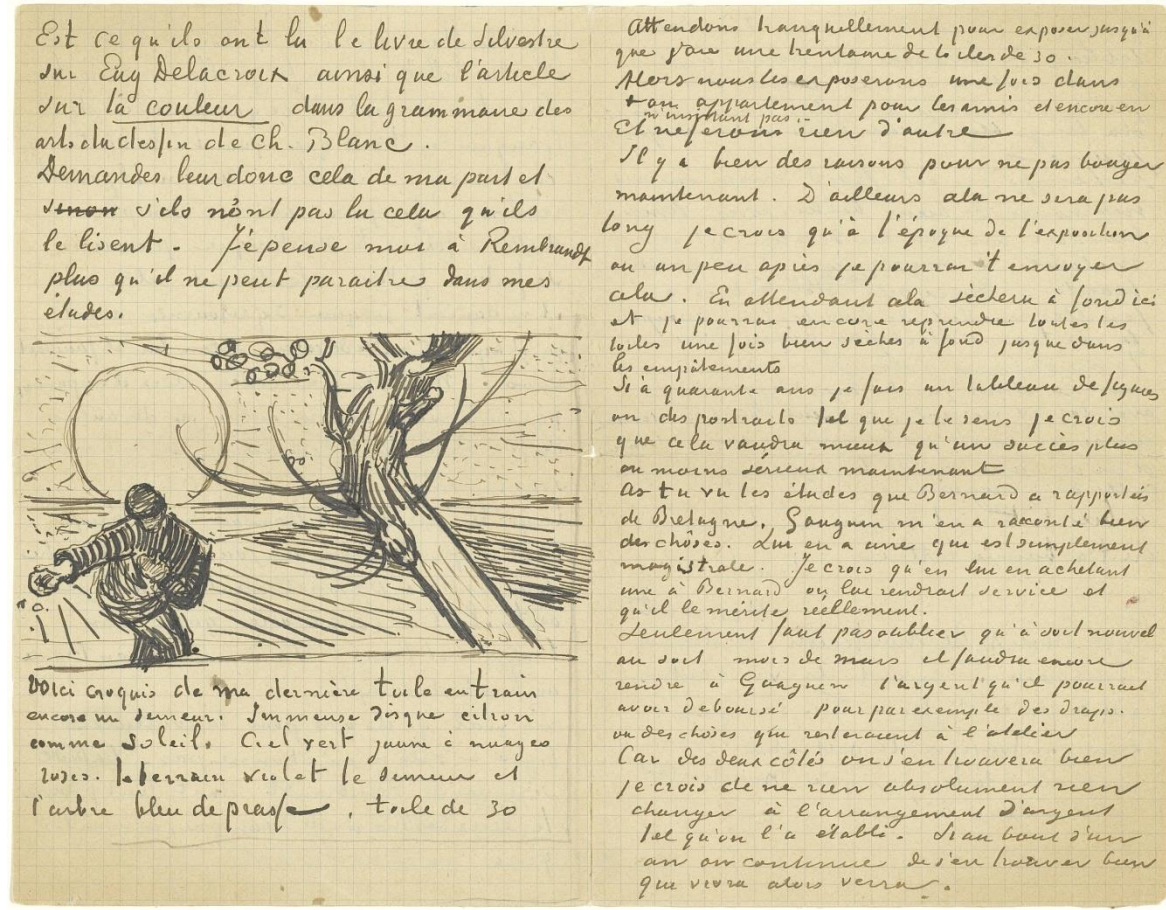 Est ce qu'ils ont lu le livre de Silvestre
sur Eug Delacroix ainsi que l'article
sur la couleur dans la grammaire des
arts du dessin de Ch. Blanc.
Demandes leur donc cela de ma part et
sinon s'ils n'ont pas lu cela qu'ils
le lisent. J'épense moi à Rembrandt
plus qu'il ne peut paraitre dans mes
études.
Voici croquis de ma dernière toile en train
encore un semeur. Immense disque citron
comme soleil. Ciel vert jaune à nuages
roses. le terrain violet le semeur et
l'arbre bleu de prusse. toile de 30
Attendons tranquillement pour exposer jusqu'à
que j'aie une trentaine de toiles de 30.
Alors nous les exposerons une fois dans
ton appartement pour les amis et encore en
n'insistant pas.
Et ne ferons rien d'autre
Il y a bien des raisons pour ne pas bouger
maintenant. D'ailleurs cela ne sera pas
long je crois qu'à l'époque de l'exposition
ou un peu après je pourrai t'envoyer
cela. En attendant cela sèchera à fond ici
et je pourrai encore reprendre toutes les
toiles une fois bien seches à fond jusque dans
les empâtements
Si à quarante ans je fais un tableau de figures
ou des portraits tel que je le sens je crois
que cela vaudra mieux qu'un succès plus
ou moins sérieux maintenant
As tu vu les études que Bernard a rapportées
de Bretagne. Gauguin m'en a raconté bien
des chôses. Lui en a une que est simplement
magistrale. Je crois qu'en lui en achetant
une à Bernard on lui rendrait service et
qu'il le mérite réellement.
Seulement faut pas oublier qu'à soit nouvel
an soit mois de mars il faudra encore
rendre à Gauguin l'argent qu'il pourrait
avoir deboursé pour par exemple des draps.
ou des choses que resteraient à l'atelier
Car des deux côtés on s'en trouvera bien
je crois de ne rien absolument rien
changer à l'arrangement d'argent
tel qu'on l'a établi. Si au bout d'un
an on continue de s'en trouver bien
que vivra alors verra.